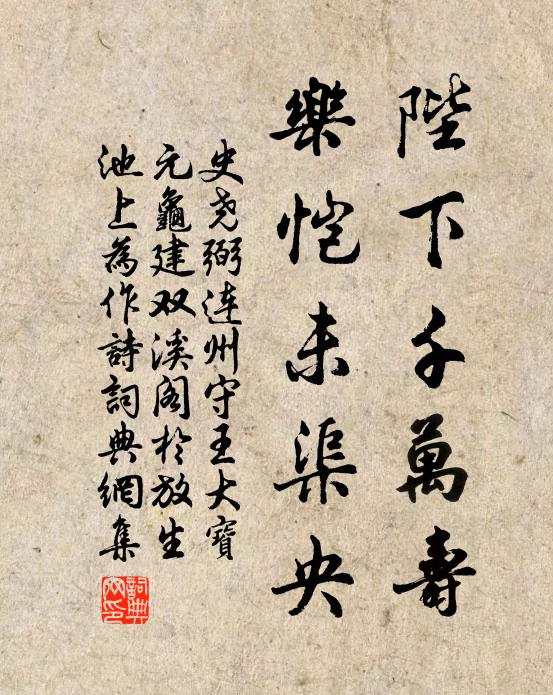 陛下千萬壽
樂愷未渠央
史尧弼连州守王大寶
元龜建双溪阁於放生
池上為作詩詞典網集
詞典网印